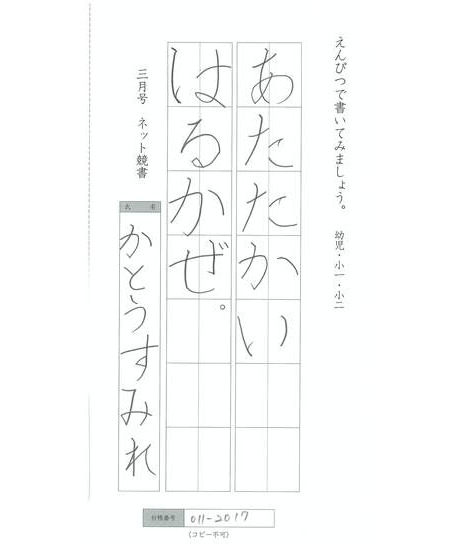 えんぴつで書いてみましょう。 幼児・小一・小二
あたたかい
はるかぜ。
三月号 ネット競書
氏名
かとうすみれ
011-2017
(コピー不可)